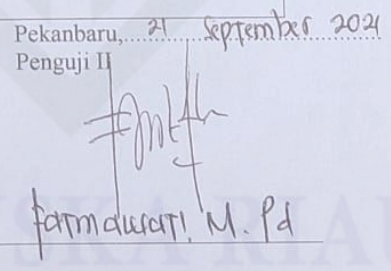 Pekanbaru,....21....September 2021
Penguji II
Farmawati, M. Pd
SKA RIA